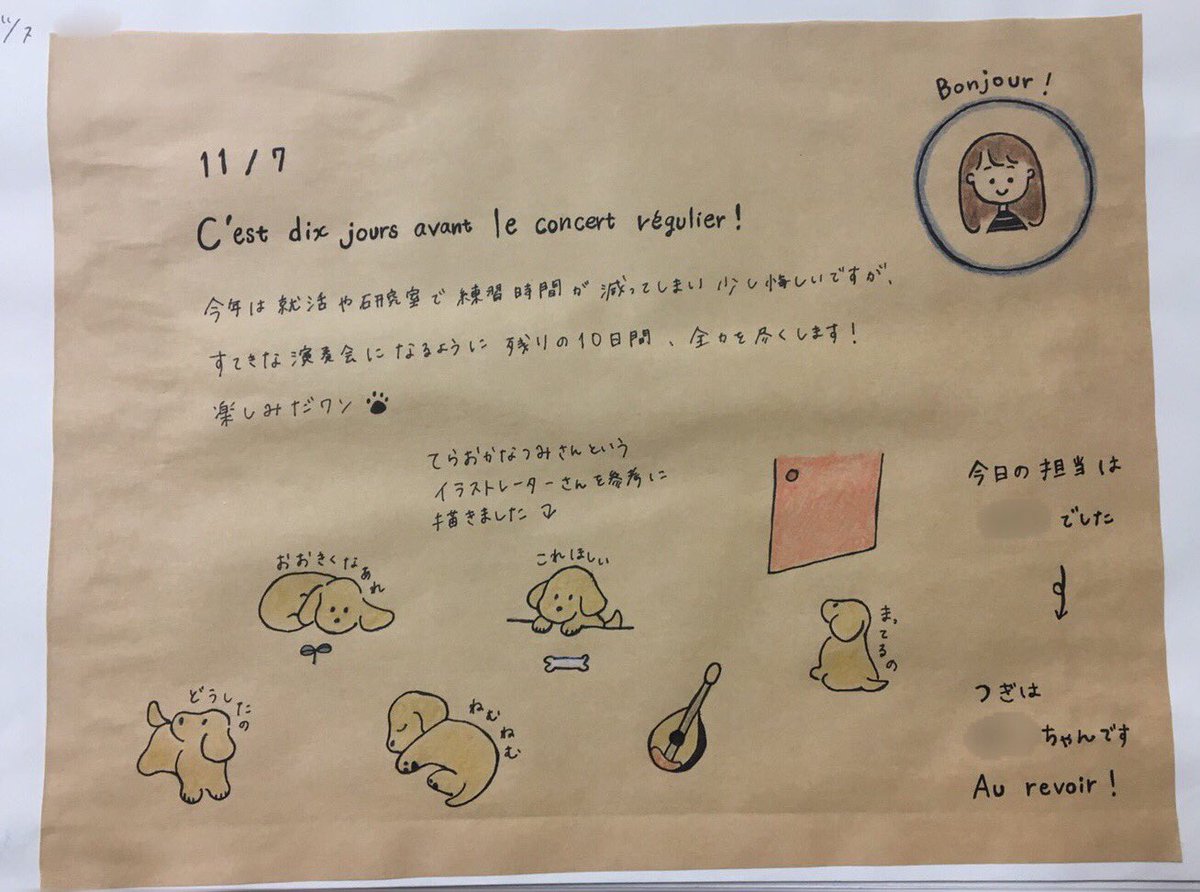 Bonjour!
11/7
C'est dix jours avant le concert régulier!
今年は就活や研究室で練習時間が減ってしまい少し悔しいですが、
すてきな演奏会になるように残りの10日間、全力を尽くします!
楽しみだワン
てらおかなつみさんという
イラストレーターさんを参考に
描きました
おおきくなあれ
これほしい
まってるの
どうしたの
ねむねむ
今日の担当は
でした
つぎは
ちゃんです
Au revoir!